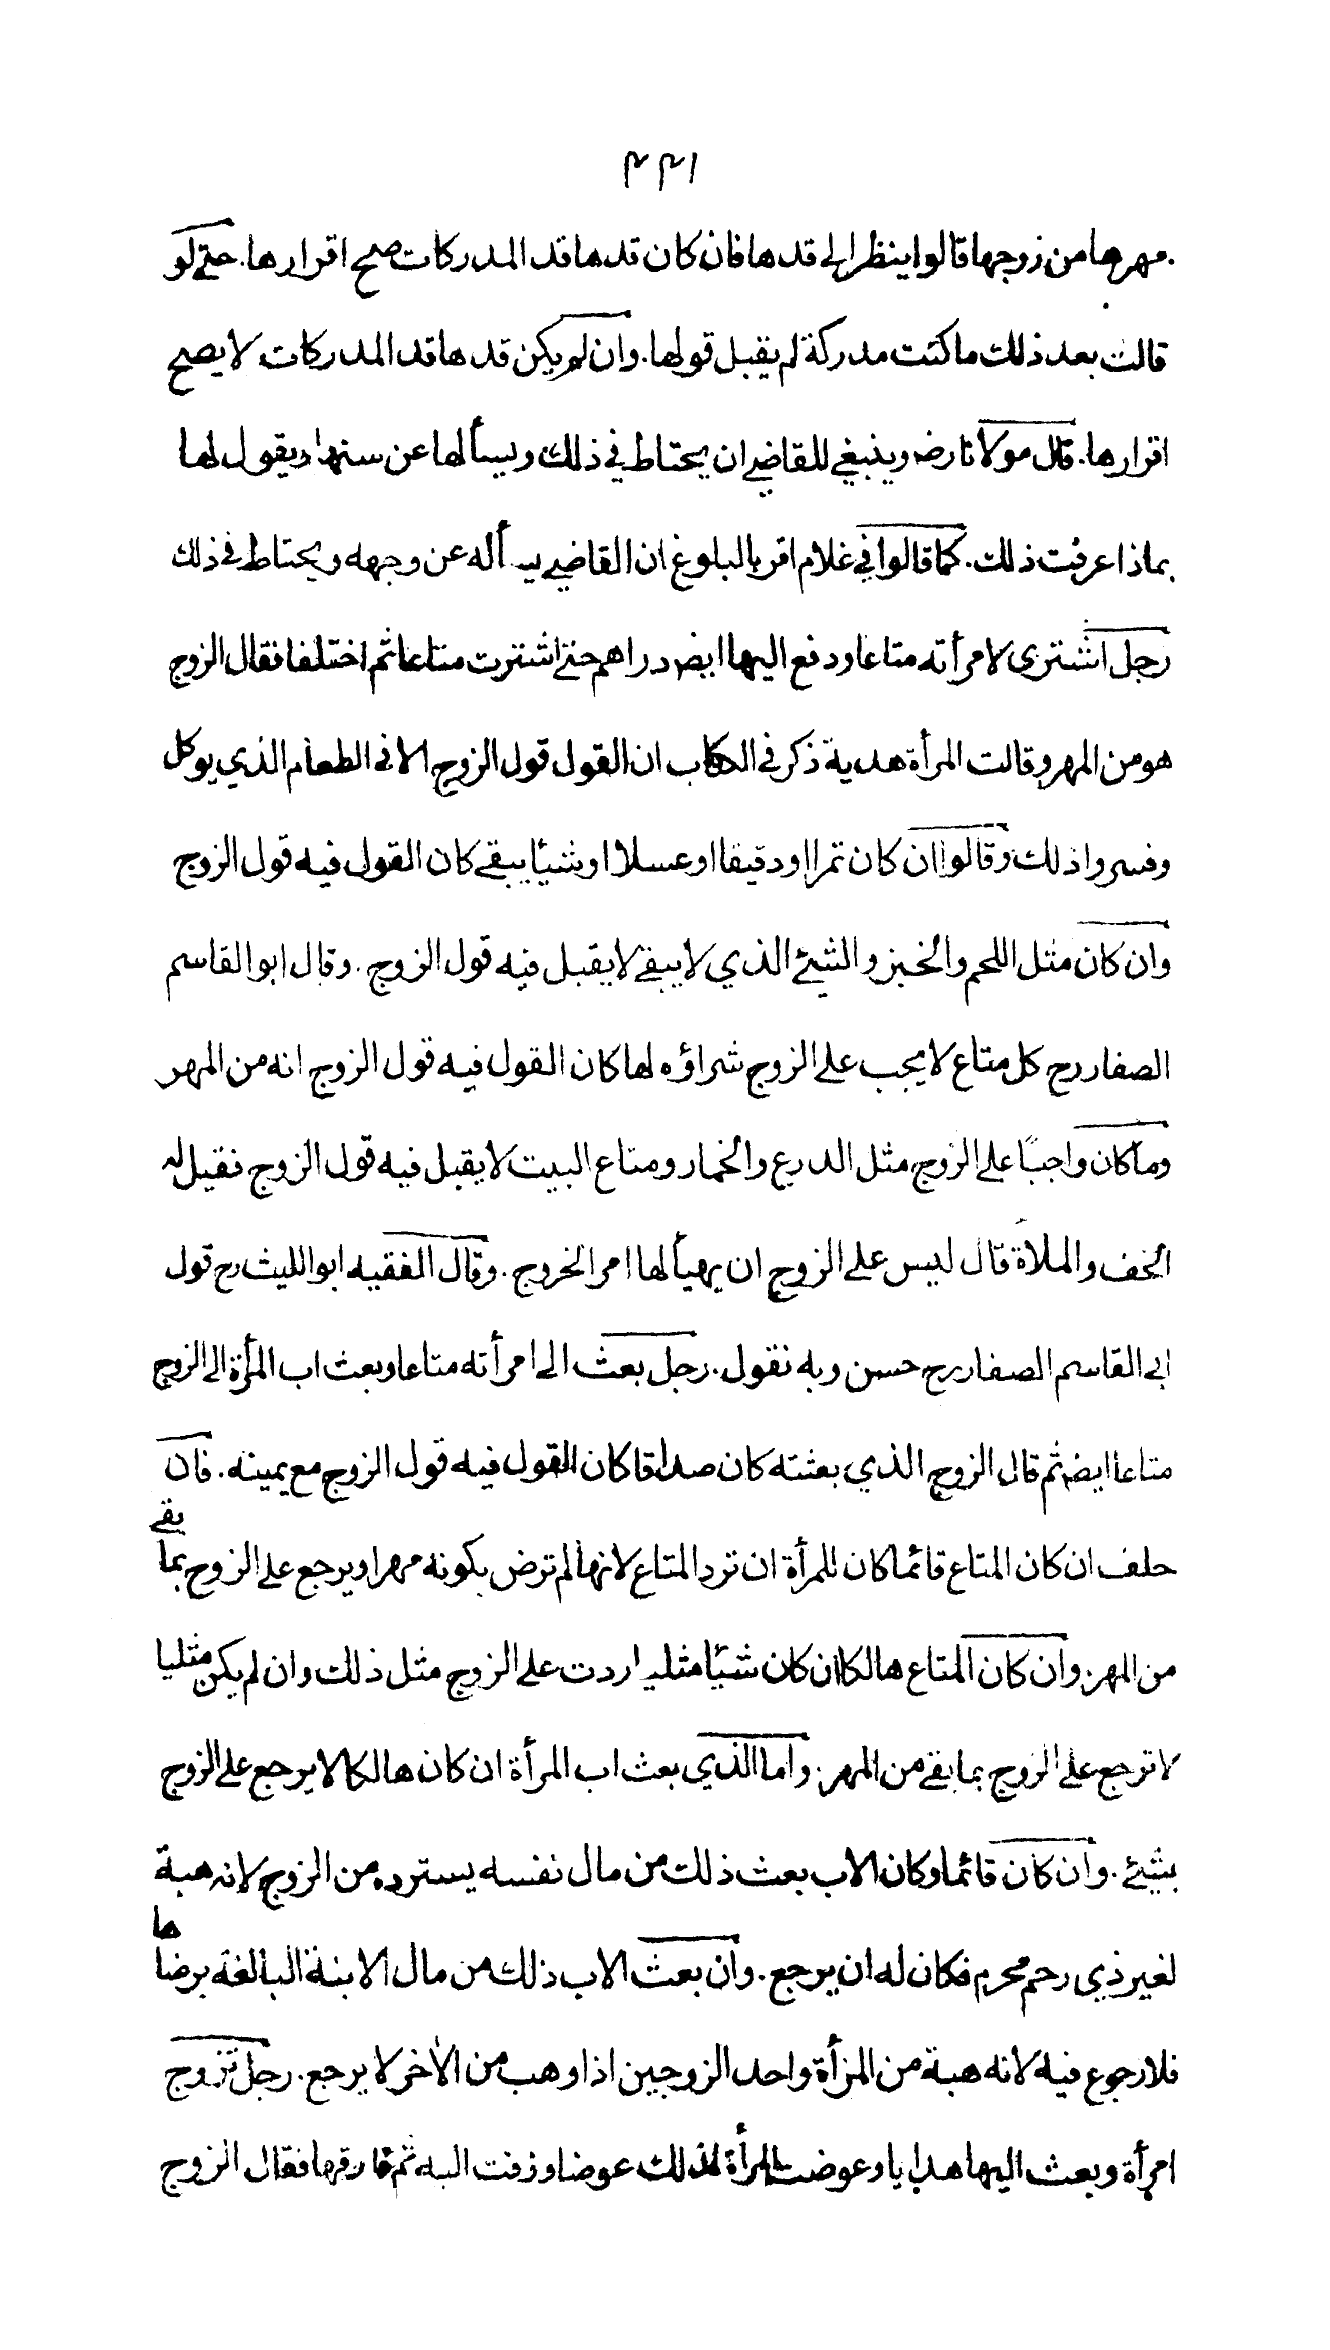 ٤٤١
مهرها من زوجها قالوا ينظر الى قدها فان كان قدها قد المدركات صح اقرارها. حتى لو
قالت بعد ذلك ما كنت مدركة لم يقبل قولها. وان لم يكن قدها قد المدركات لا يصح
اقرارها. قال مولانا رضـ وينبغي للقاضي ان يحتاط في ذلك ويسألها عن سنها ويقول لها
بماذا عرفت ذلك. كما قالوا في غلام اقر بالبلوغ ان القاضي يسأله عن وجهه ويحتاط في ذلك
رجل اشترى لامرأته متاعا ودفع اليها ايضـ دراهم حتى اشترت متاعا ثم اختلفا فقال الزوج
هو من المهر وقالت المرأة هدية ذكر في الكتاب ان القول قول الزوج الا في الطعام الذي يوكل
وفسروا ذلك وقالوا ان كان تمرا او دقيقا او عسلا او شيئا يبقى كان القول فيه قول الزوج
وان كان مثل اللحم والخبز والشيئ الذي لا يبقى لا يقبل فيه قول الزوج. وقال ابو القاسم
الصفار رح كل متاع لا يجب على الزوج شراؤه لها كان القول فيه قول الزوج انه من المهر
وما كان واجبًا على الزوج مثل الدرع والخمار ومتاع البيت لا يقبل فيه قول الزوج فقيل له
الخف والملاة قال ليس على الزوج ان يهيأ لها امر الخروج. وقال الفقيه ابو الليث رح قول
ابى القاسم الصفار رح حسن وبه نقول. رجل بعث الى امرأته متاعا وبعث اب المرأة الى الزوج
متاعا ايضـ ثم قال الزوج الذي بعثته كان صداقا كان القول فيه قول الزوج مع يمينه. فان
حلف ان كان المتاع قائما كان للمرأة ان ترد المتاع لانها لم ترض بكونه مهرا ويرجع على الزوج بما بقى
من المهر. وان كان المتاع هالكا ان كان شيئا مثليا ردت على الزوج مثل ذلك وان لم يكن مثليا
لا ترجع على الزوج بما بقى من المهر. واما الذي بعث اب المرأة ان كان هالكا لا يرجع على الزوج
بشيئ. وان كان قائما وكان الاب بعث ذلك من مال نفسه يسترده من الزوج لانه هبة
لغير ذي رحم محرم فكان له ان يرجع. وان بعث الاب ذلك من مال الابنة البالغة برضاها
فلا رجوع فيه لانه هبة من المرأة واحد الزوجين اذا وهب من الآخر لا يرجع. رجل تزوج
امرأة وبعث اليها هدايا وعوضت المرأة لذلك عوضا وزفت اليه ثم فارقها فقال الزوج